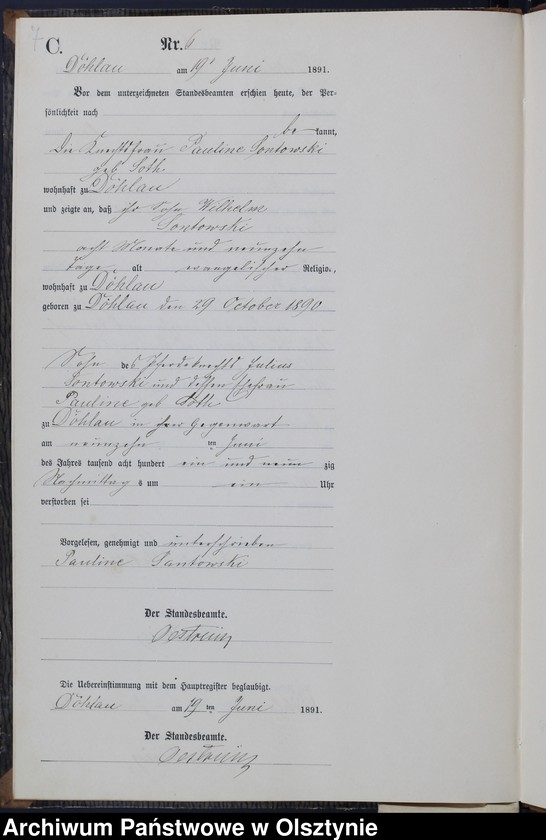 7
C.
Nr. 6
Döhlau am 19 Juni 1891.
Vor dem unterzeichneten Standesbeamten erschien heute, der Per-
sönlichkeit nach
be kannt,
Die Knechtsfrau Pauline Sontowski
geb Soth
wohnhaft zu Döhlau
und zeigte an, daß ihr Sohn Wilhelm
Sontowski
acht Monate und neunzehn
Tage, alt evangelischer Religion,
wohnhaft zu Döhlau
geboren zu Döhlau den 29 October 1890
Sohn des Pferdeknecht Julius
Sontowski und dessen Ehefrau
Pauline geb Soth
zu Döhlau in ihrer Gegenwart
am neunzehn ten Juni
des Jahres tausend acht hundert ein und neun zig
Nachmittag s um ein Uhr
verstorben sei
Vorgelesen, genehmigt und unterschrieben
Pauline Santowski
Der Standesbeamte.
Die Uebereinstimmung mit dem Hauptregister beglaubigt.
Döhlau am 19 ten Juni 1891.
Der Standesbeamte.
Archiwum Państwowe w Olsztynie